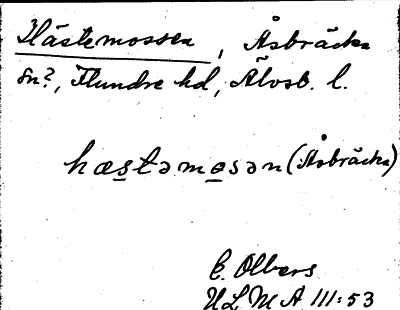 Hästemossen, Åsbräcka
sn?, Flundre hd, Älvsb. l.
hæstəmɵsən (Åsbräcka)
E. Olbers
ULMA 111:53